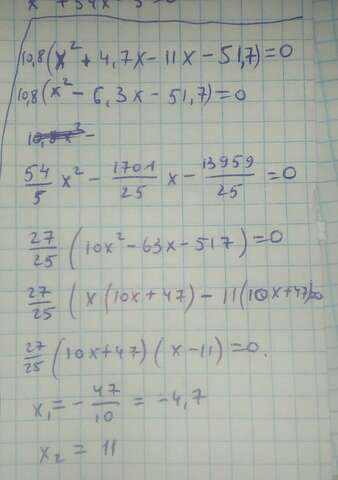 10,8(x² + 4,7x - 11x - 51,7) = 0
10,8(x² - 6,3x - 51,7) = 0
54/5 x² - 1701/25 x - 13959/25 = 0
27/25 (10x² - 63x - 517) = 0
27/25 (x(10x + 47) - 11(10x + 47)) = 0
27/25 (10x + 47)(x - 11) = 0.
x₁ = - 47/10 = -4,7
x₂ = 11